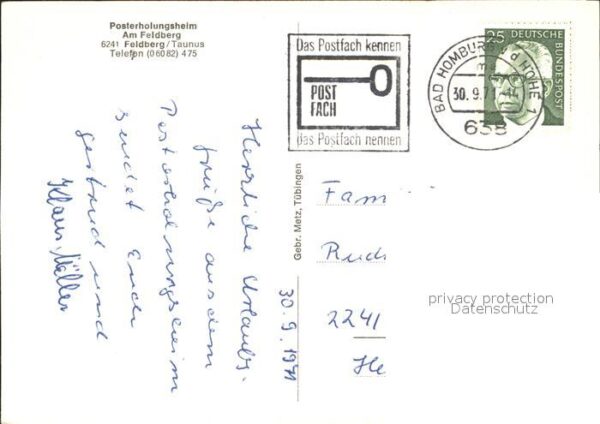 Posterholungsheim
Am Feldberg
6241 Feldberg/Taunus
Telefon (06082) 475
Das Postfach kennen
POST
FACH
das Postfach nennen
BAD HOMBURG v d HÖHE 1
30.9.71
638
25 DEUTSCHE
BUNDESPOST
Herrliche Urlaubs-
grüße aus dem
Posterholungsheim
sendet Euch
gesund und
Klaus Müller
30.9.1971
Gebr. Metz, Tübingen
Fam
Rud
2241
He
privacy protection
Datenschutz